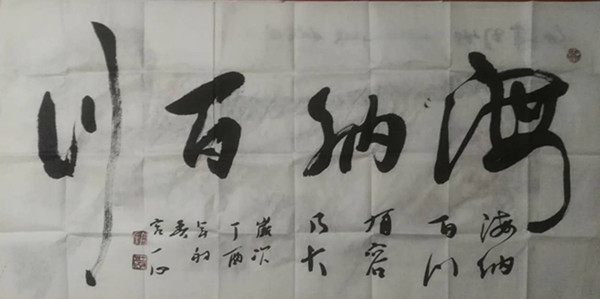 海纳百川
海纳
百川
有容
乃大
歲次
丁酉